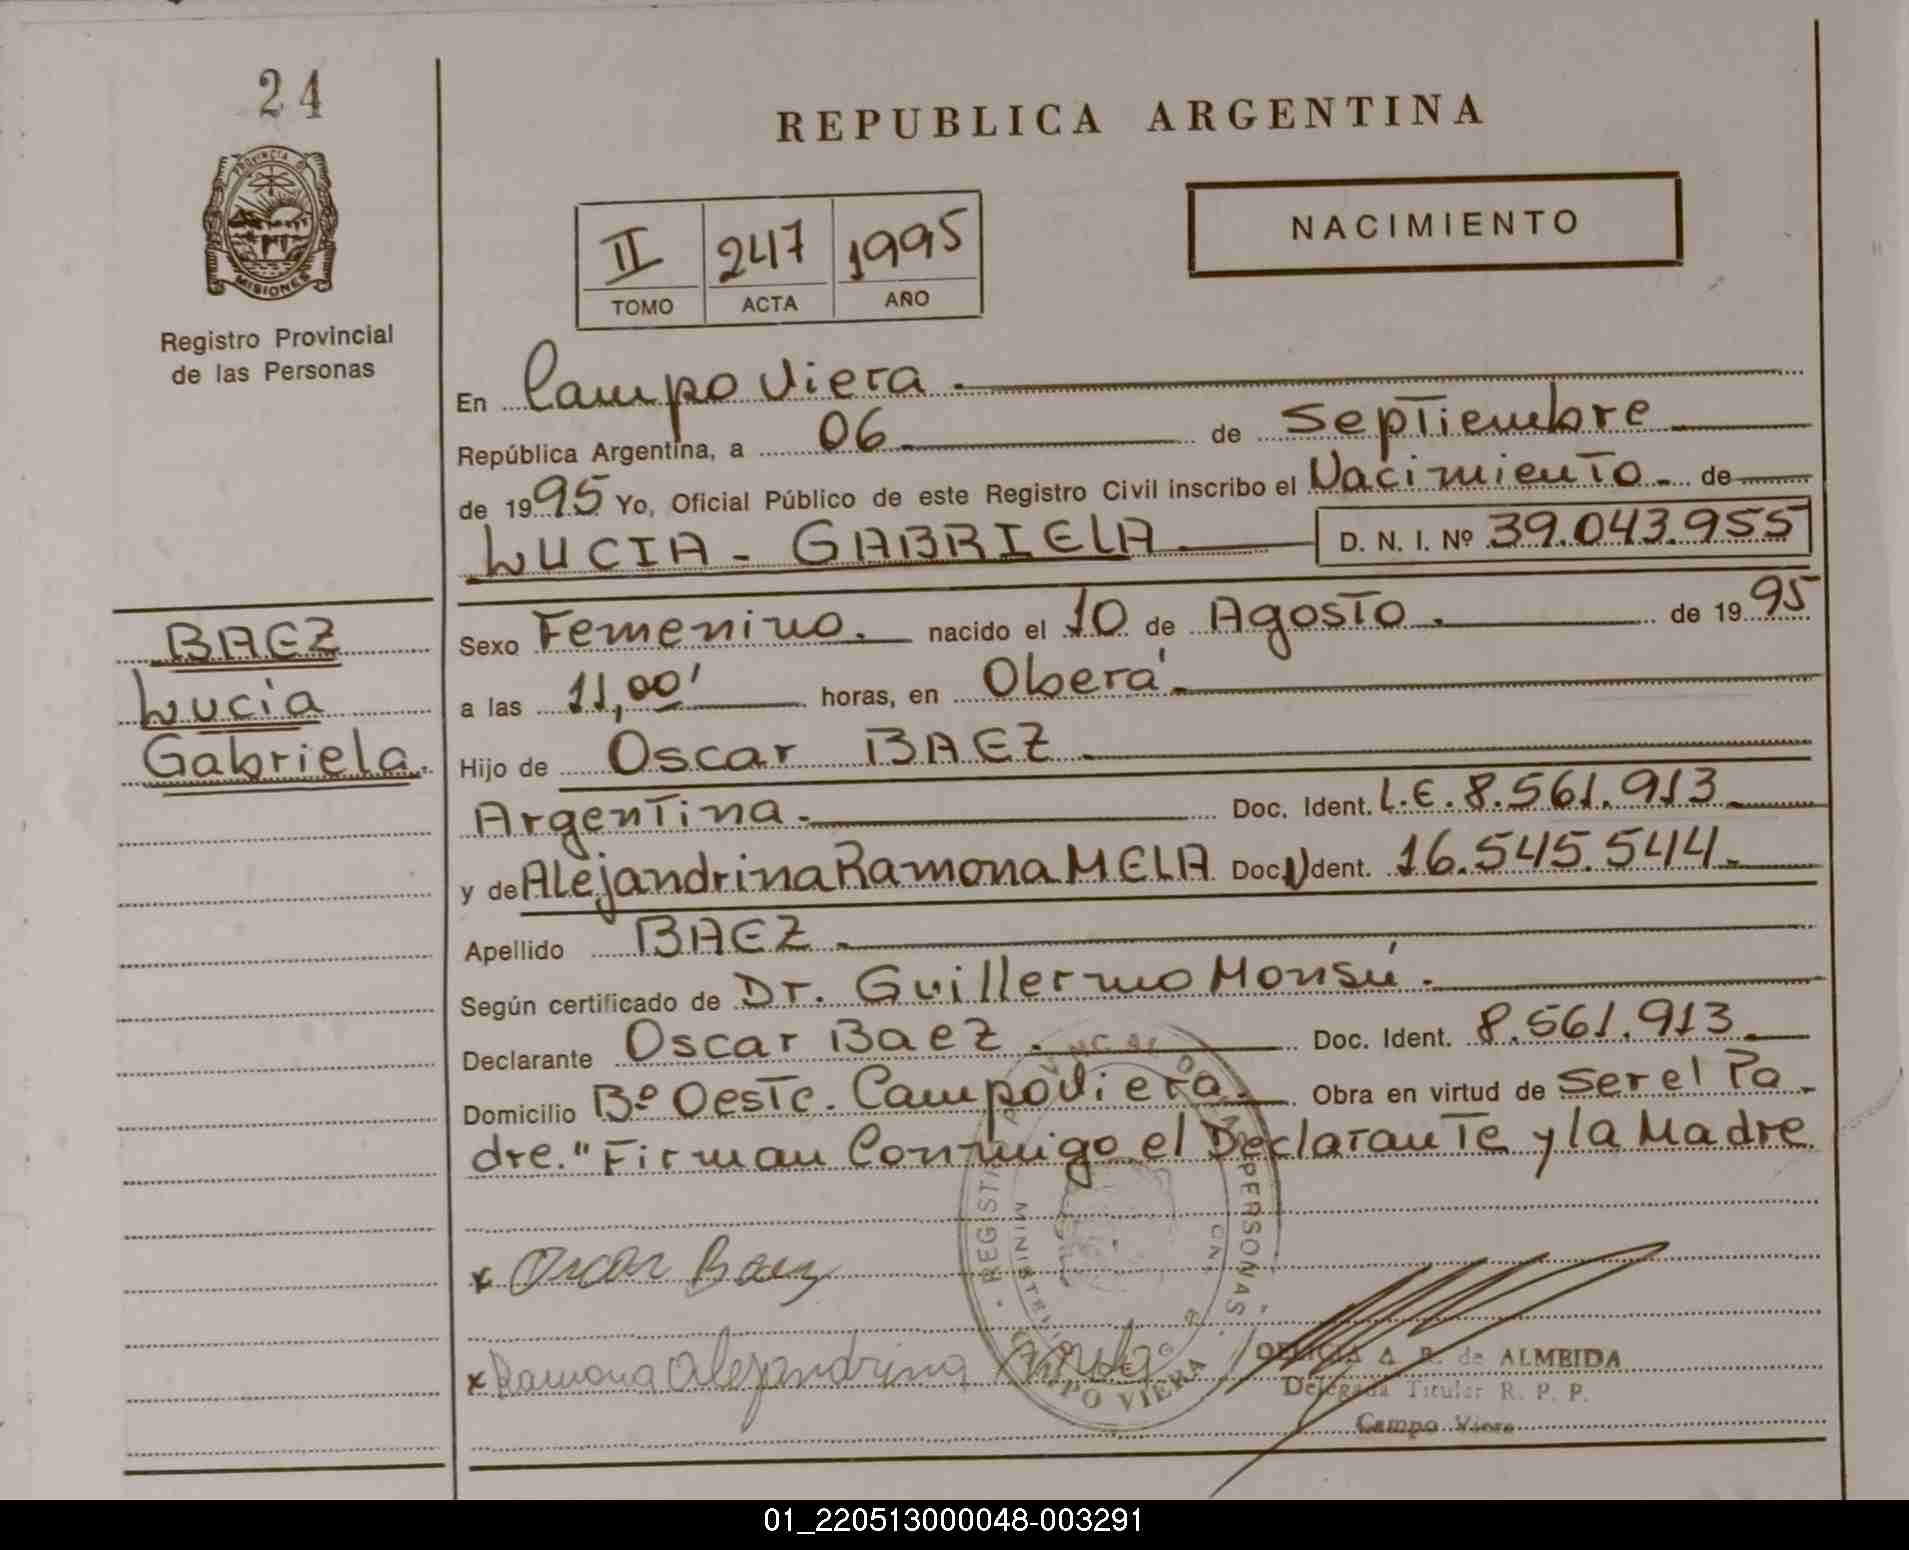 24
PROVINCIA DE
MISIONES
Registro Provincial
de las Personas
REPUBLICA ARGENTINA
II 247 1995
TOMO ACTA AÑO
NACIMIENTO
En Campo Viera.
República Argentina, a 06 de Septiembre
de 1995 Yo, Oficial Público de este Registro Civil inscribo el Nacimiento. de
LUCIA - GABRIELA D. N. I. Nº 39.043.955
BAEZ
Lucia
Gabriela.
Sexo Femenino. nacido el 10 de Agosto. de 1995
a las 11,00' horas, en Oberá.
Hijo de Oscar BAEZ.
Argentina. Doc. Ident. L.E. 8.561.913.
y de Alejandrina Ramona MELA Doc. Ident. 16.545.544.
Apellido BAEZ.
Según certificado de Dr. Guillermo Monsú.
Declarante Oscar Baez. Doc. Ident. 8.561.913.
Domicilio Bº Oeste. Campo Viera. Obra en virtud de ser el Pa-
dre." Firman Conmigo el Declarante y la Madre
x Oscar Baez
x Ramona Alejandrina
REGISTRO PERSONAS
CAMPO VIERA
de ALMEIDA
Delegada Titular R. P. P.
Campo Viera
01_220513000048-003291